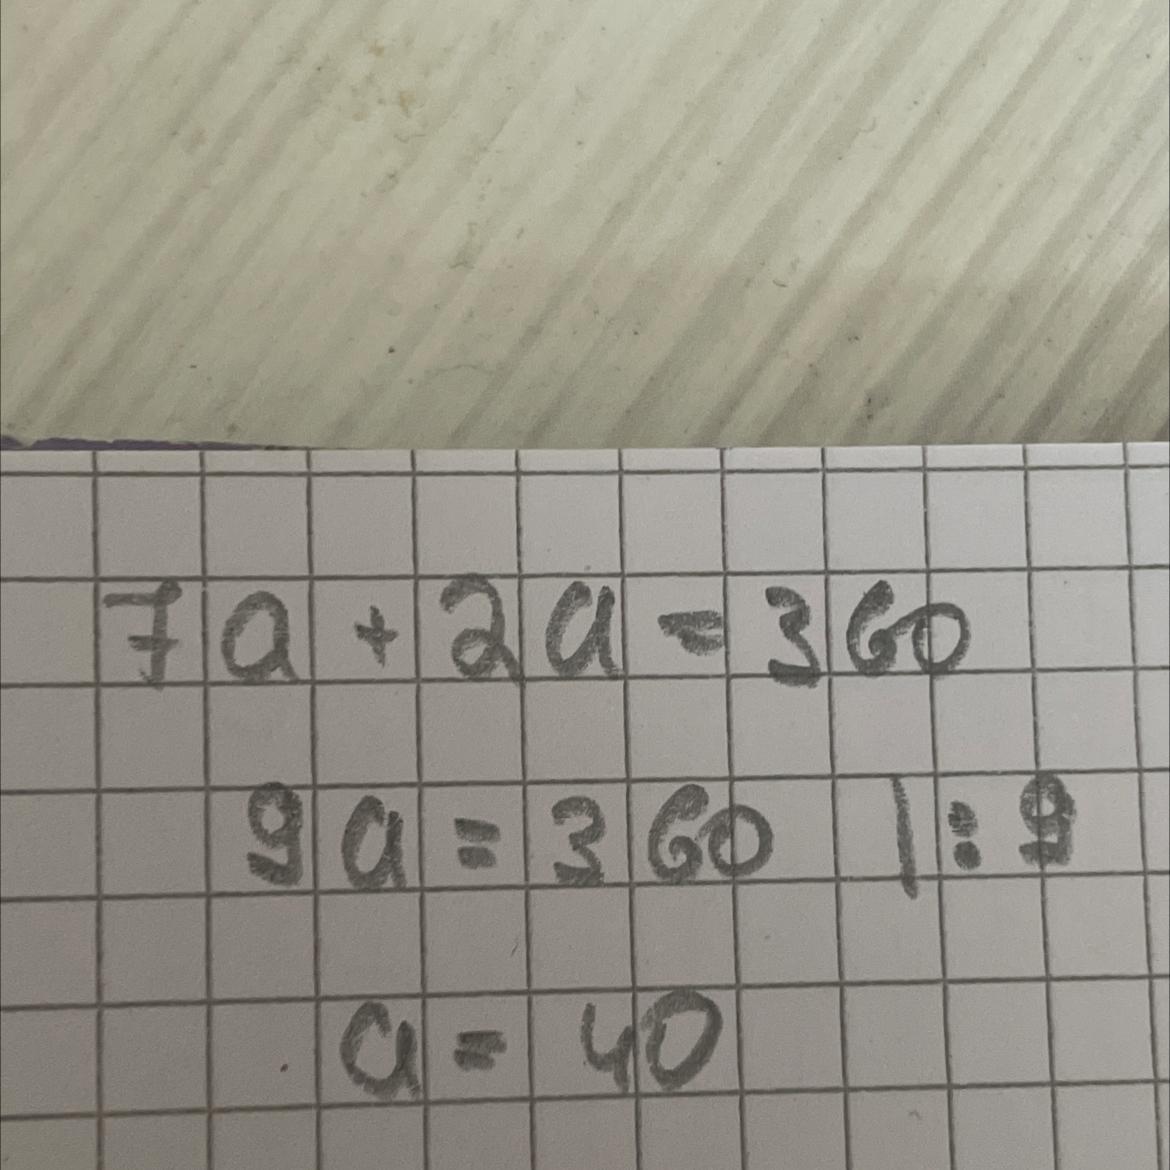 7a + 2a = 360
9a = 360 | : 9
a = 40